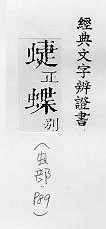 經典文字辨證書
蜨正蝶別
(虫部.189)